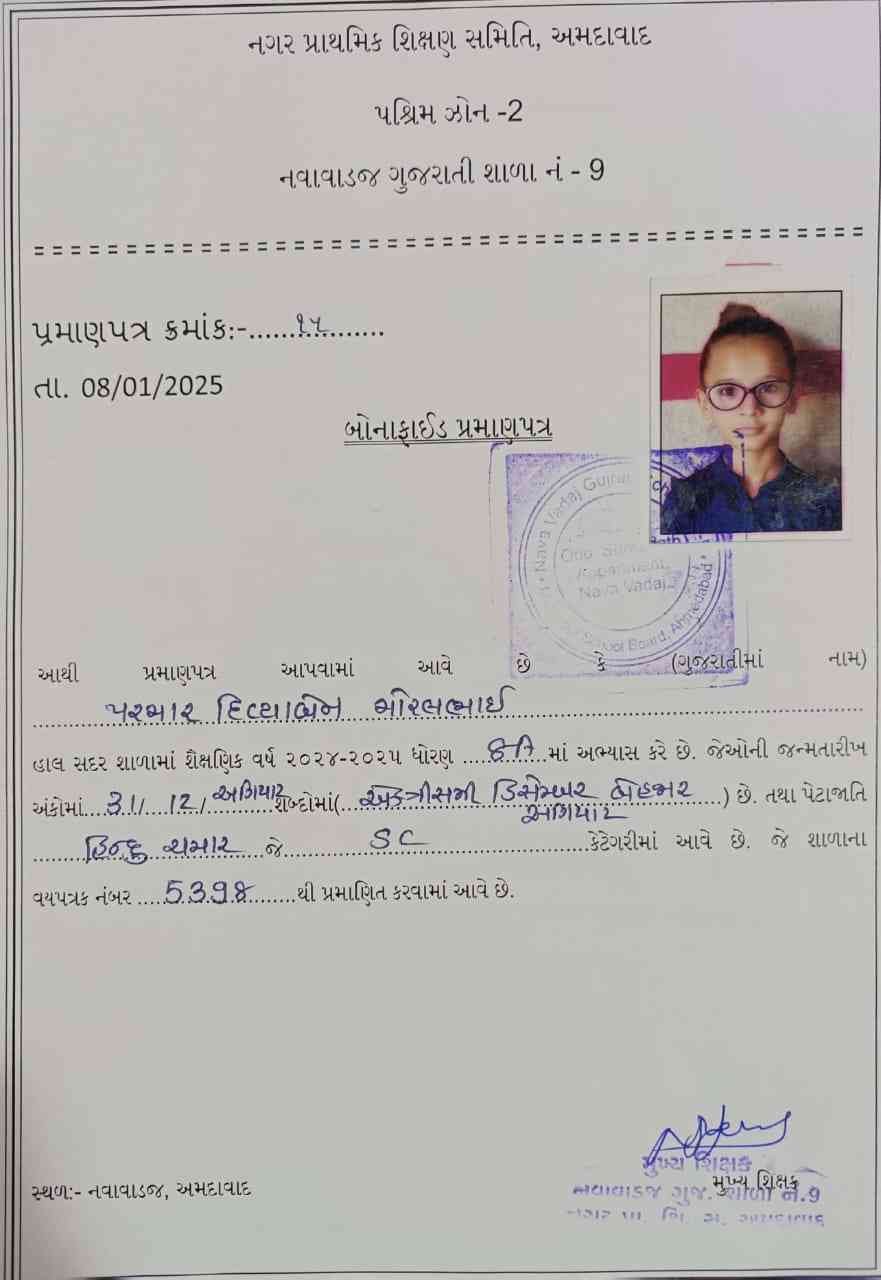 નગર પ્રાથમિક શિક્ષણ સમિતિ, અમદાવાદ
પશ્ચિમ ઝોન -2
નવાવાડજ ગુજરાતી શાળા નં - 9
પ્રમાણપત્ર ક્રમાંક:-......૧૫......
તા. 08/01/2025
બોનાફાઈડ પ્રમાણપત્ર
Nava Vadaj Gujrat
Nava Vadaj
School Board, Ahmedabad
આથી પ્રમાણપત્ર આપવામાં આવે છે કે (ગુજરાતીમાં નામ)
પરમાર દિવ્યાબેન
હાલ સદર શાળામાં શૈક્ષણિક વર્ષ ૨૦૨૪-૨૦૨૫ ધોરણ ....માં અભ્યાસ કરે છે. જેઓની જન્મતારીખ
અંકોમાં...31/ 12/ અગિયાર શબ્દોમાં(..એકત્રીસમી ડિસેમ્બર બેહજાર...) છે. તથા પેટાજાતિ
અગિયાર
હિન્દુ ચમાર જે SC કેટેગરીમાં આવે છે. જે શાળાના
વયપત્રક નંબર .....5398........થી પ્રમાણિત કરવામાં આવે છે.
મુખ્ય શિક્ષક
સ્થળ:- નવાવાડજ, અમદાવાદ મુખ્ય શિક્ષક
નવાવાડજ ગુજ. શાળા નં.9